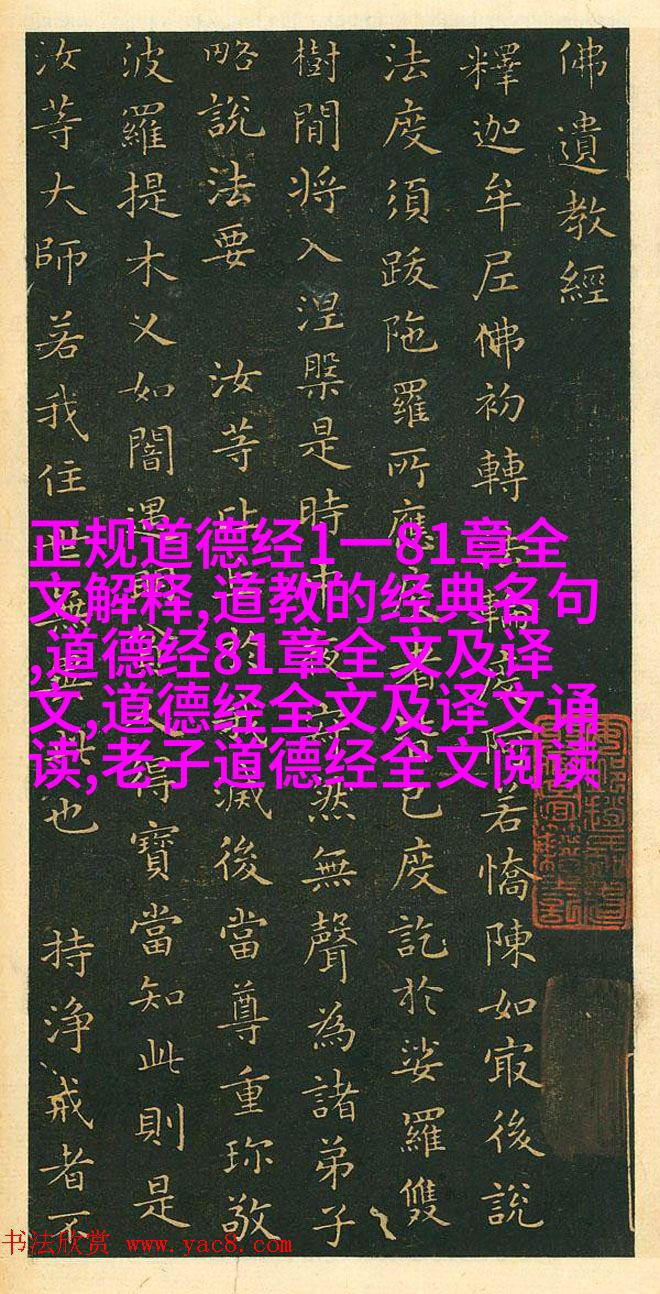 佛遺教經
釋迦牟尼佛初轉法輪度阿若憍陳如冣後說
法度須跋陁羅所應度者皆已度訖於娑羅雙
樹間將入涅槃是時中夜寂然無聲為諸弟子
略說法要 汝等比丘於我滅後當尊重珍敬
波羅提木叉如闇遇明貧人得寶當知此則是
汝等大師若我住世無異此也 持淨戒者不
正规道德经1一81章全
文解释,道教的经典名句
,道德经81章全文及译
文,道德经全文及译文诵
读,老子道德经全文阅读
书法欣赏 www.yac8.com